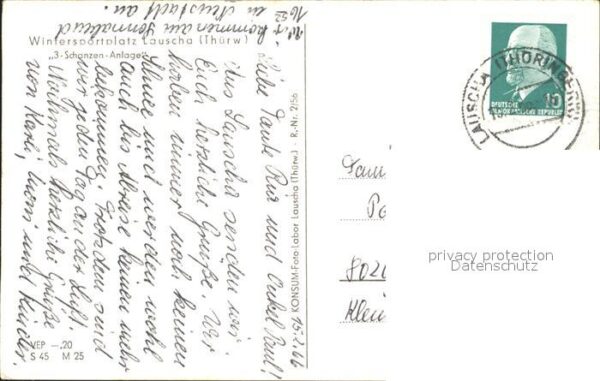 Wir kommen am Sonnabend
16⁵² in Neustadt an.
Wintersportplatz Lauscha (Thürw.)
„3-Schanzen-Anlage"
Liebe Tante Ria und Onkel Paul!
Aus Lauscha senden wir
Euch herzliche Grüße. Wir
haben immer noch keinen
Schnee und werden wohl
auch bis Abreise keinen mehr
bekommen. Trotzdem sind
wir jeden Tag an der Luft.
Nochmals herzliche Grüße
von Karl, und Kinder.
VEP —.20
S 45 M 25
KONSUM-Foto-Labor Lauscha (Thürw.) · R.-Nr. 2/56
15.2.66
LAUSCHA (THÜRINGERW)
10
DEUTSCHE
DEMOKRATISCHE REPUBLIK
Fam
Pa
802
Klein
privacy protection
Datenschutz